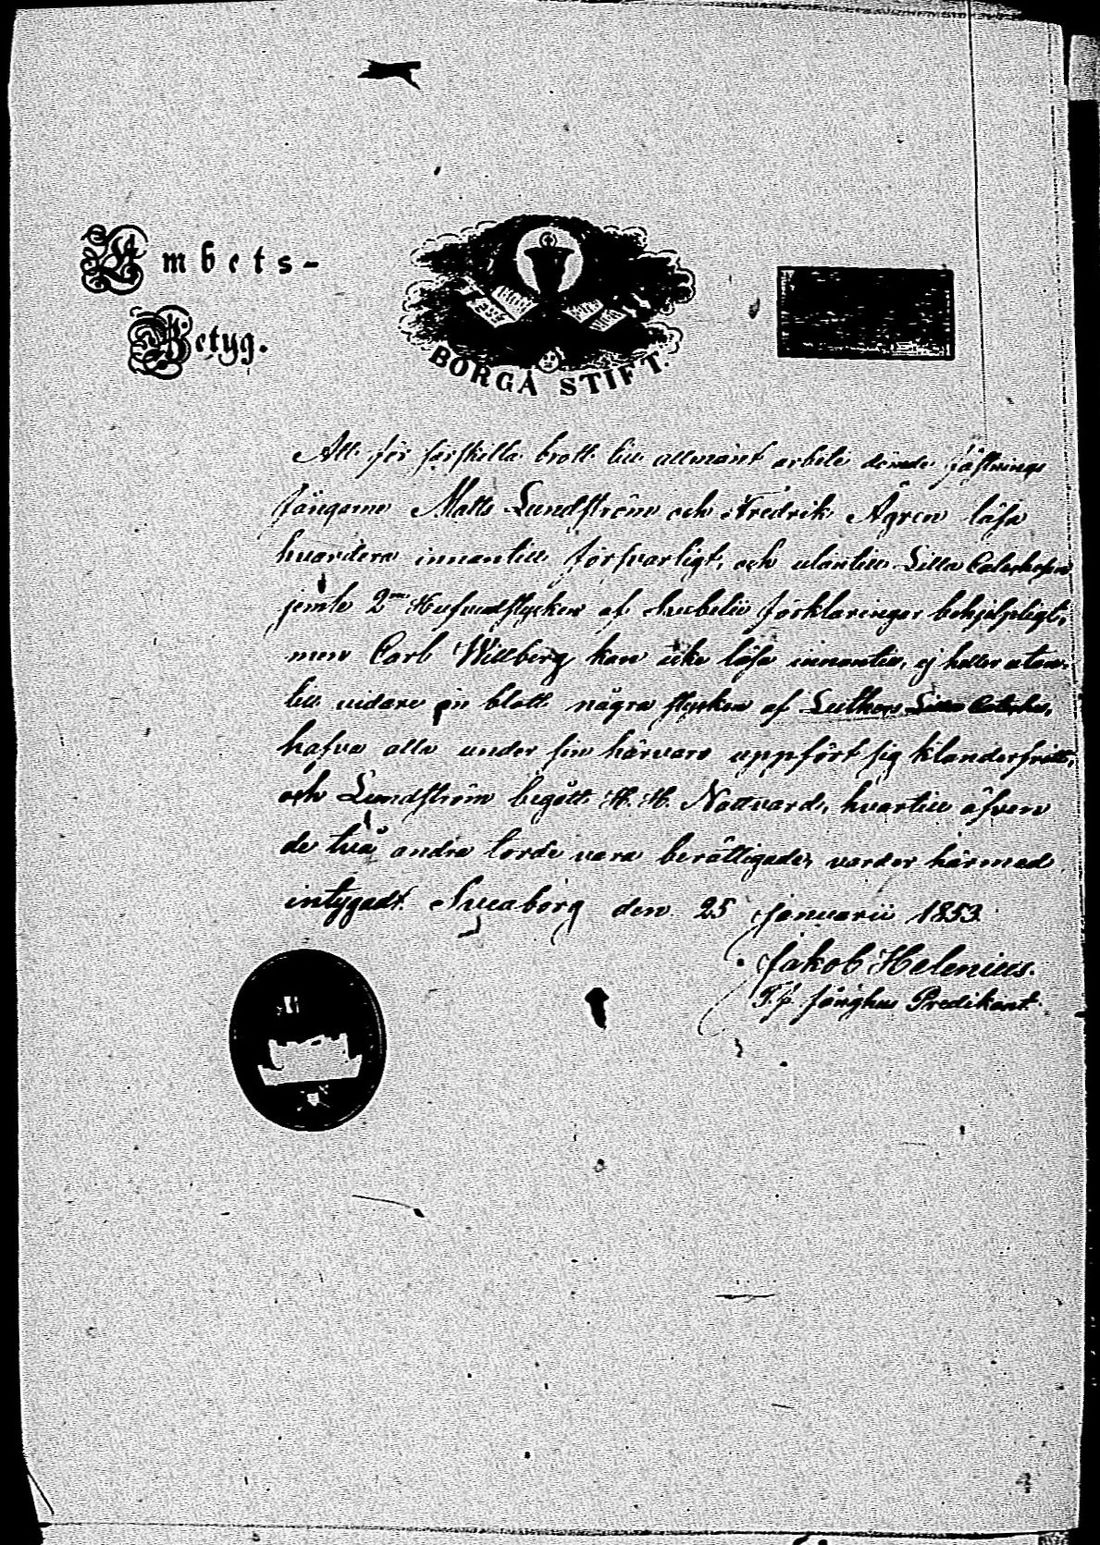 Ambets-
Betyg.
BORGÅ STIFT.
Att för särskilta brott till allmänt arbete dömde fästnings
fångarne Matts Lundström och Fredrik Ågren läsa
hvardera innantill försvarligt, och utantill Lilla Catechesen
jemte 2ne Hufvudstycken af Svebelii förklaringar behjelpligt,
men Carl Willberg kan icke läsa innantill, ej heller utan-
till vidare än blott några stycken af Luthers Lilla Cateches,
hafva alla under sin härvaro uppfört sig klanderfritt,
och Lundström begått H. H. Nattvard, hvartill äfven
de två andra torde vara berättigade, varder härmed
intygadt. Sveaborg den 25 Januarii 1853.
Jakob Helenius.
T.f. fånghus Predikant.